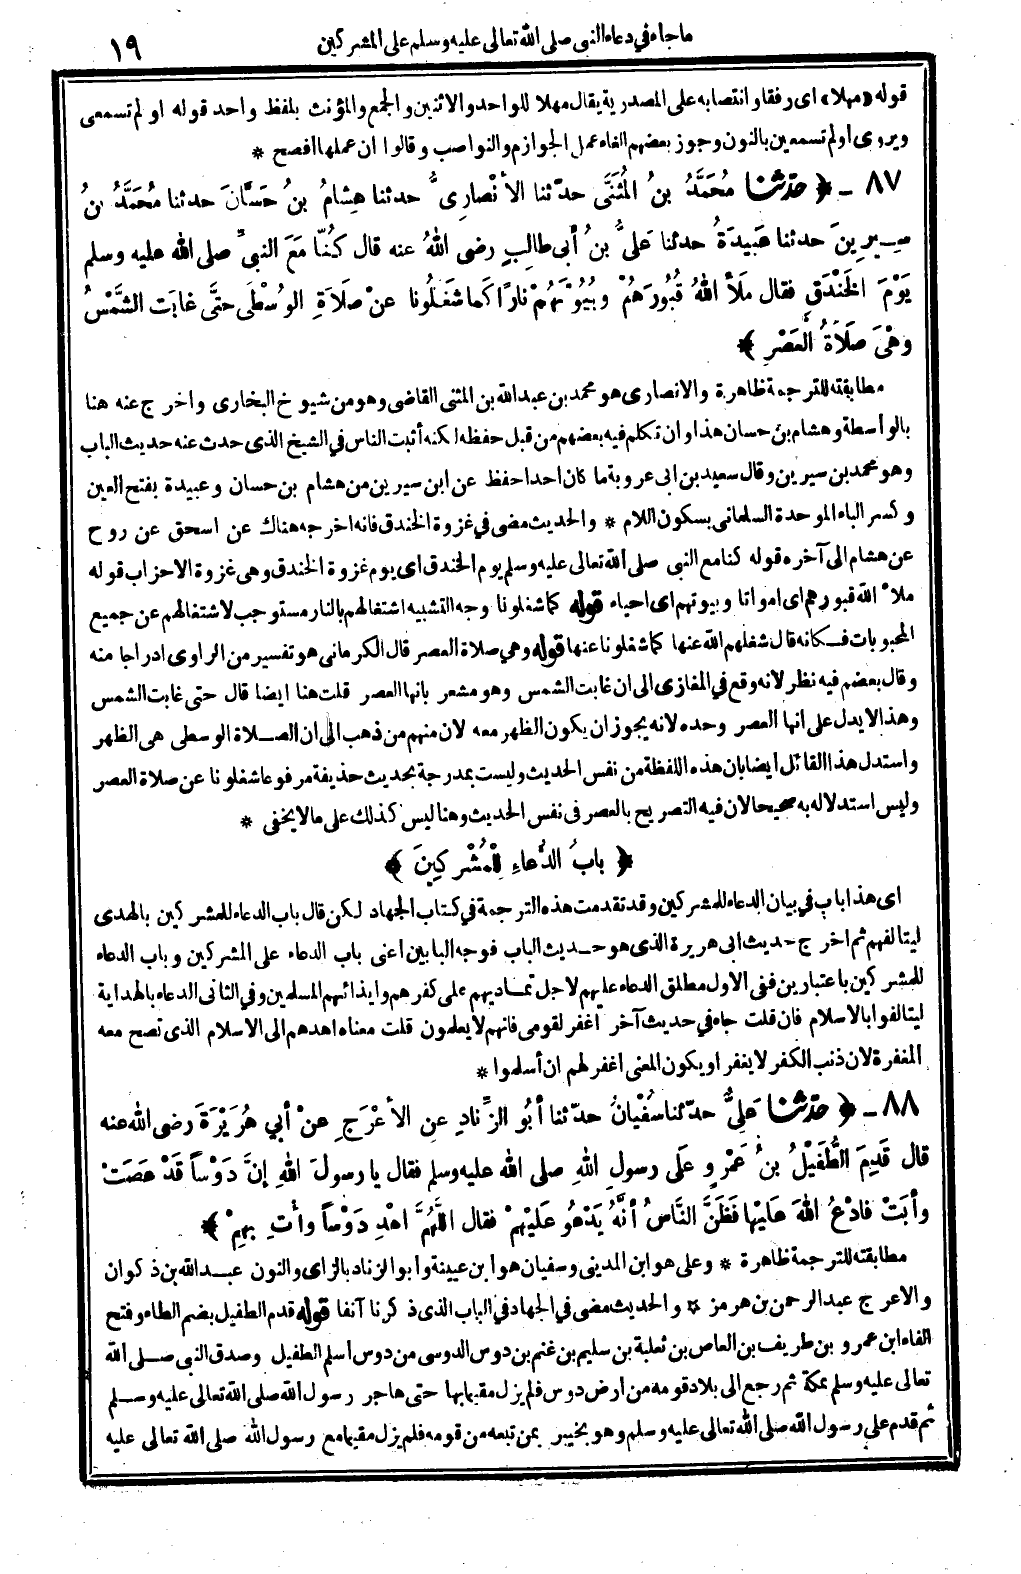 ماجاء في دعاء النبي صلى الله تعالى عليه وسلم على المشركين ١٩
قوله «مهلا» اى رفقا وانتصابه على المصدرية يقال مهلا للواحد والاثنين والجمع والمؤنث بلفظ واحد قوله او لم تسمعى
ويروى اولم تسمعين بالنون وجوز بعضهم الغاء عمل الجوازم والنواصب وقالوا ان عملها افصح *
٨٧ - ﴿ حدّثنا مُحَمَّدُ بنُ المُثَنَّى حدّثنا الأنْصارِىُّ حدثنا هِشامُ بنُ حَسَّانَ حدثنا مُحَمَّدُ بنُ
سِيرِينَ حدثنا عَبِيدَةُ حدثنا عَلِىُّ بنُ أبى طالِبٍ رضى اللهُ عنه قال كُنَّا مَعَ النبىِّ صلى الله عليه وسلم
يَوْمَ الخَنْدَقِ فقال مَلَأَ اللهُ قُبُورَهُمْ وبُيُوتَهُمْ نارًا كَما شَغَلُونا عنْ صَلَاةِ الوُسْطَى حتَّى غابَت الشَّمْسُ
وهْىَ صَلَاةُ العَصْرِ ﴾
مطابقته للترجمة ظاهرة والانصارى هو محمد بن عبد الله بن المثنى القاضى وهو من شيوخ البخارى واخرج عنه هنا
بالواسطة وهشام بن حسان هذا وان تكلم فيه بعضهم من قبل حفظه لكنه أثبت الناس في الشيخ الذى حدث عنه حديث الباب
وهو محمد بن سيرين وقال سعيد بن ابى عروبة ما كان احدا حفظ عن ابن سيرين من هشام بن حسان وعبيدة بفتح العين
وكسر الباء الموحدة السلمانى بسكون اللام * والحديث مضى في غزوة الخندق فانه اخرجه هناك عن اسحق عن روح
عن هشام الى آخره قوله كنا مع النبى صلى الله تعالى عليه وسلم يوم الخندق اى يوم غزوة الخندق وهى غزوة الاحزاب قوله
ملأ الله قبورهم اى امواتا وبيوتهم اى احياء قوله كما شغلونا وجه التشبيه اشتغالهم بالنار مستوجب لاشتغالهم عن جميع
المحبوبات فكانه قال شغلهم الله عنها كما شغلونا عنها قوله وهي صلاة العصر قال الكرمانى هو تفسير من الراوى ادراجا منه
وقال بعضم فيه نظر لانه وقع في المغازى الى ان غابت الشمس وهو مشعر بانها العصر قلت هنا ايضا قال حتى غابت الشمس
وهذا لا يدل على انها العصر وحده لانه يجوز ان يكون الظهر معه لان منهم من ذهب الى ان الصلاة الوسطى هى الظهر
واستدل هذا القائل ايضا بان هذه اللفظة من نفس الحديث وليست بمدرجة بحديث حذيفة مرفوعا شغلونا عن صلاة العصر
وليس استدلاله به صحيحا لان فيه التصريح بالعصر فى نفس الحديث وهنا ليس كذلك على ما لا يخفى *
﴿ بابُ الدُّعاءِ لِلْمُشْرِكِينَ ﴾
اى هذا باب في بيان الدعاء للمشركين وقد تقدمت هذه الترجمة في كتاب الجهاد لكن قال باب الدعاء للمشركين بالهدى
ليتالفهم ثم اخرج حديث ابى هريرة الذى هو حديث الباب فوجه البابين اعنى باب الدعاء على المشركين وباب الدعاء
للمشركين باعتبارين ففى الاول مطلق الدعاء عليهم لاجل تماديهم على كفرهم وايذائهم المسلمين وفي الثانى الدعاء بالهداية
ليتالفوا بالاسلام فان قلت جاء في حديث آخر اغفر لقومى فانهم لا يعلمون قلت معناه اهدهم الى الاسلام الذى تصح معه
المغفرة لان ذنب الكفر لا يغفر او يكون المعنى اغفر لهم ان أسلموا *
٨٨ - ﴿ حدّثنا عَلِىٌّ حدّثنا سُفْيانُ حدّثنا أبُو الزِّنادِ عنِ الأعْرَجِ عنْ أبي هُرَيْرَةَ رضى الله عنه
قال قَدِمَ الطُّفَيْلُ بنُ عَمْرٍو علَى رسولِ اللهِ صلى الله عليه وسلم فقال يا رسولَ اللهِ إنَّ دَوْساً قَدْ عَصَتْ
وأبَتْ فادْعُ اللهَ عَلَيْها فَظَنَّ النَّاسُ أنَّهُ يَدْعُو عَلَيْهِمْ فقال اللَّهُمَّ اهْدِ دَوْساً وأْتِ بِهِمْ ﴾
مطابقته للترجمة ظاهرة * وعلى هو ابن المدينى وسفيان هو ابن عيينة وأبو الزناد بالزاى والنون عبد الله بن ذكوان
والاعرج عبد الرحمن بن هرمز * والحديث مضى في الجهاد في الباب الذى ذكرنا آنفا قوله قدم الطفيل بضم الطاء وفتح
الفاء ابن عمرو بن طريف بن العاص بن ثعلبة بن سليم بن غنم بن دوس الدوسى من دوس أسلم الطفيل وصدق النبى صلى الله
تعالى عليه وسلم بمكة ثم رجع الى بلاد قومه من ارض دوس فلم يزل مقيما بها حتى هاجر رسول الله صلى الله تعالى عليه وسلم
ثم قدم على رسول الله صلى الله تعالى عليه وسلم وهو بخيبر بمن تبعه من قومه فلم يزل مقيما مع رسول الله صلى الله تعالى عليه